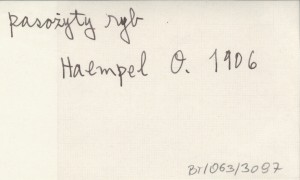 pasożyty ryb
Haempel O. 1906
Br/063/3087